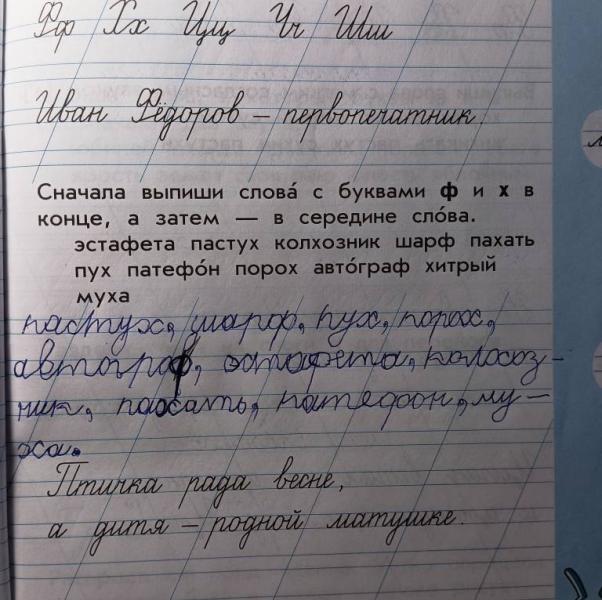 Фф Хх Цц Чч Шш
Иван Фёдоров – первопечатник.
Сначала выпиши слова́ с буквами ф и х в
конце, а затем — в середине сло́ва.
эстафета пастух колхозник шарф пахать
пух патефо́н порох авто́граф хитрый
муха
пастух, шарф, пух, порох,
автограф, эстафета, колхоз-
ник, пахать, патефон, му-
ха.
Птичка рада весне,
а дитя – родной матушке.